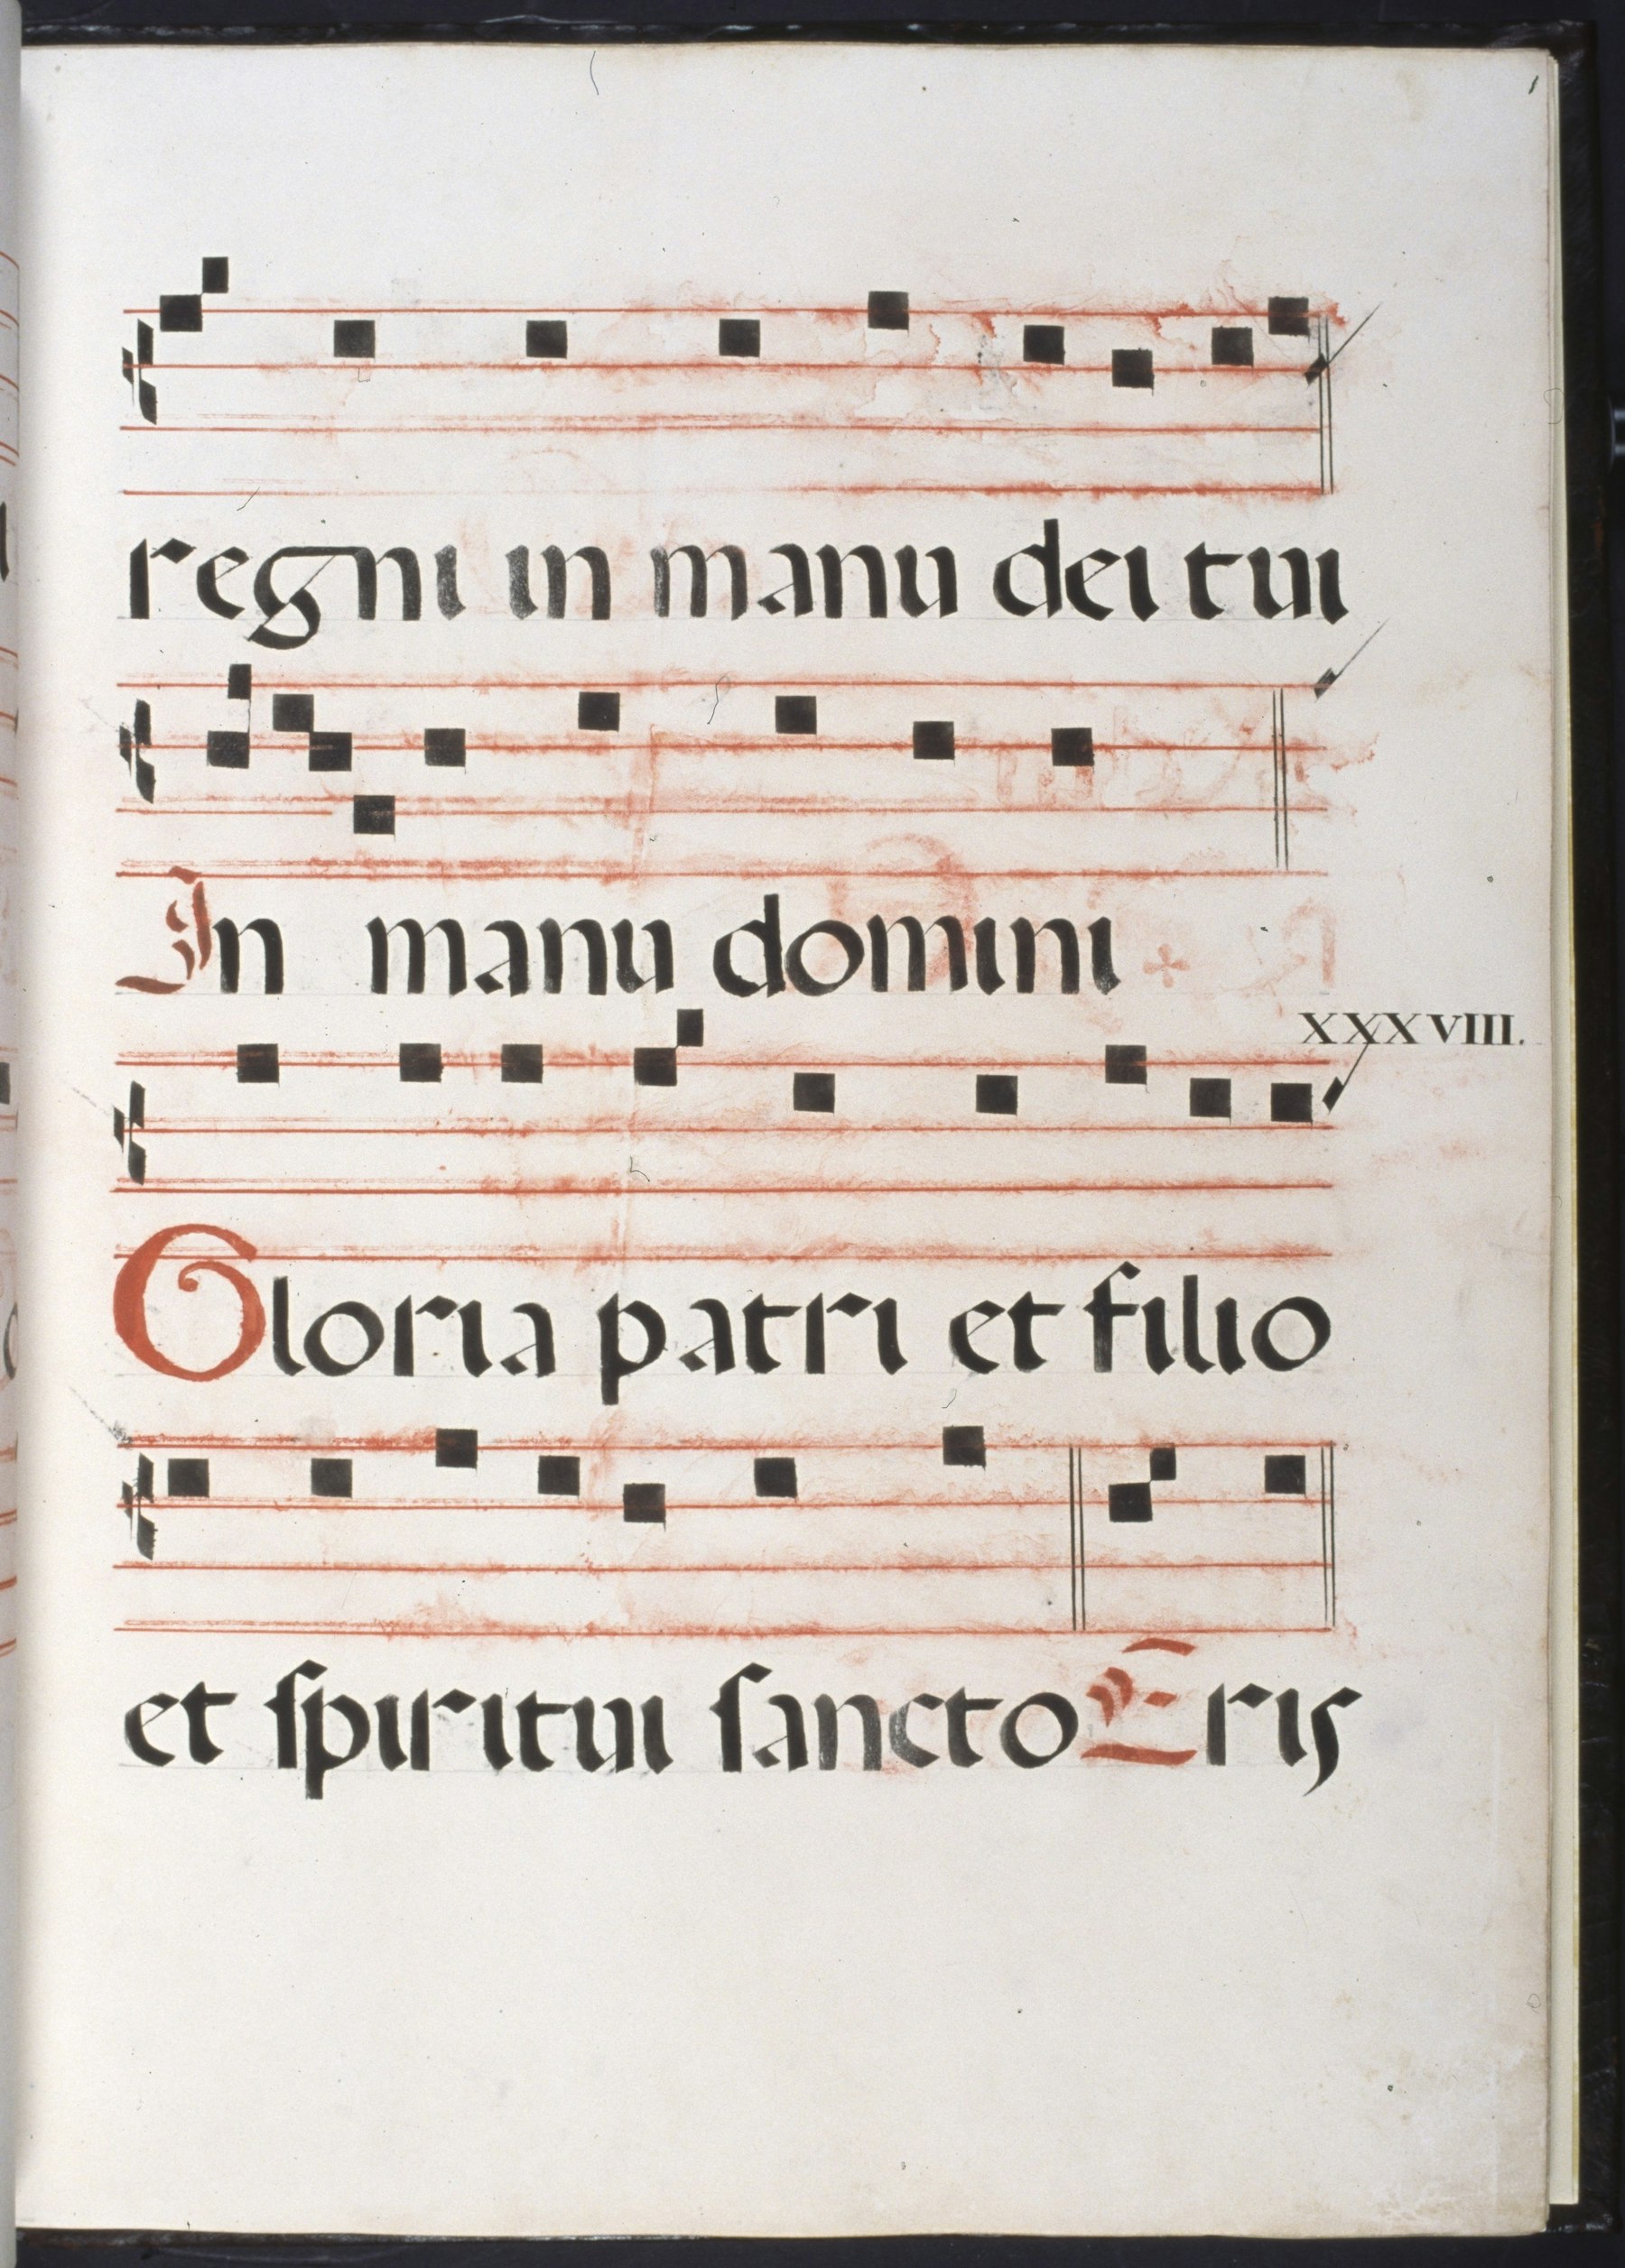 regni in manu dei tui
In manu domini
XXXVIII.
Gloria patri et filio
et ſpiritui ſancto Eris